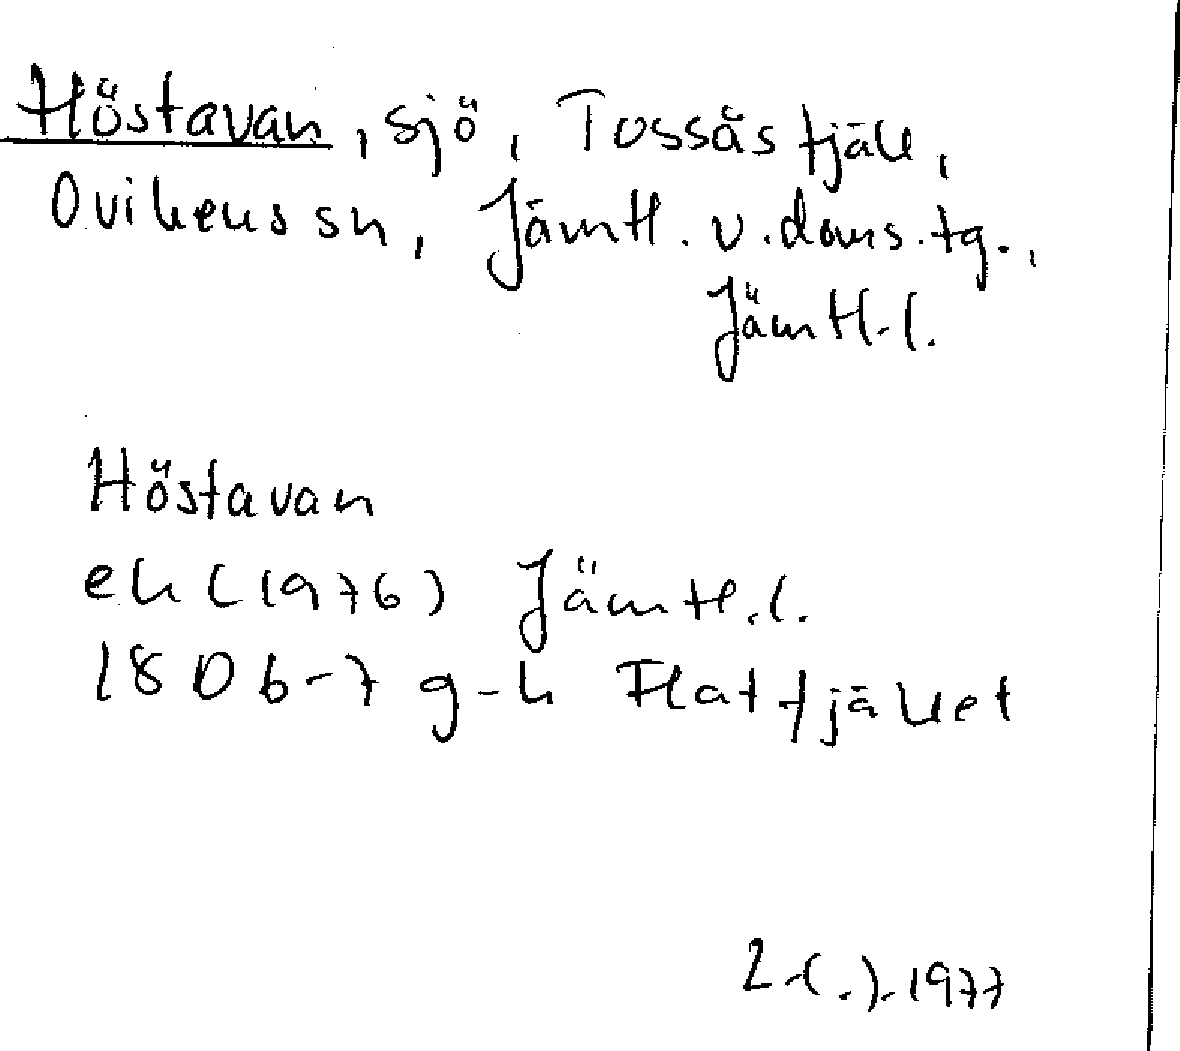 Höstavan, sjö, Tossåsfjäll,
Ovikens sn, Jämtl. v. doms. tg.,
Jämtl. l.
Höstavan
ek (1976) Jämtl. l.
18 D 6-7 g-h Flatfjället
1977